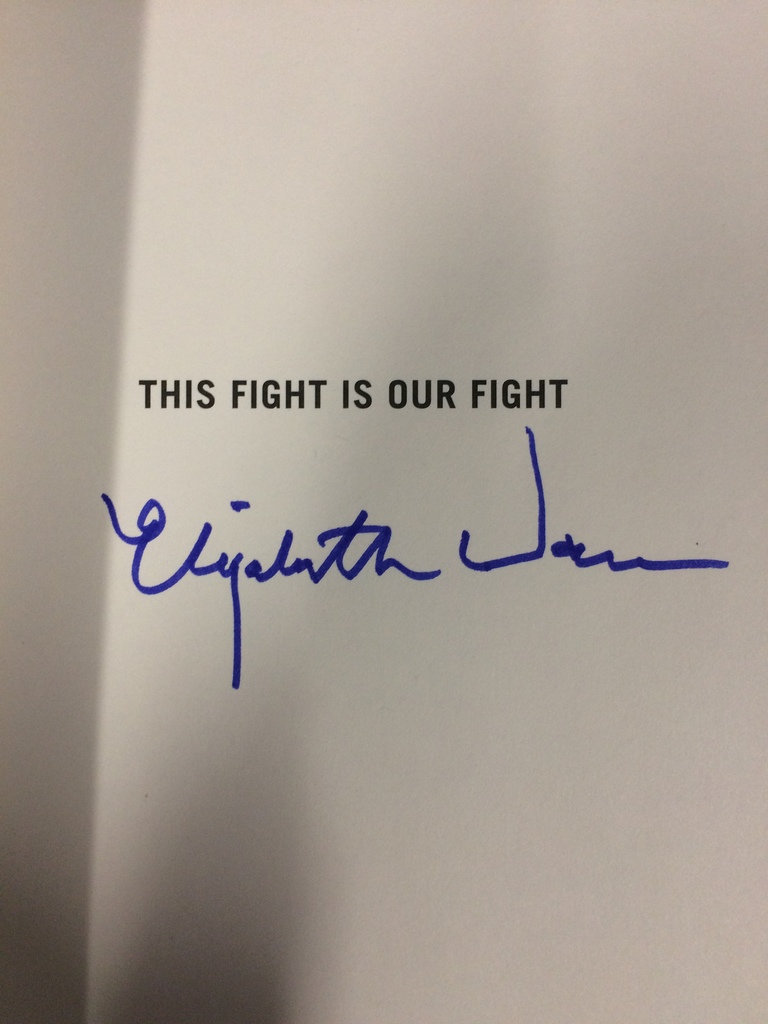 THIS FIGHT IS OUR FIGHT
Elizabeth Warren